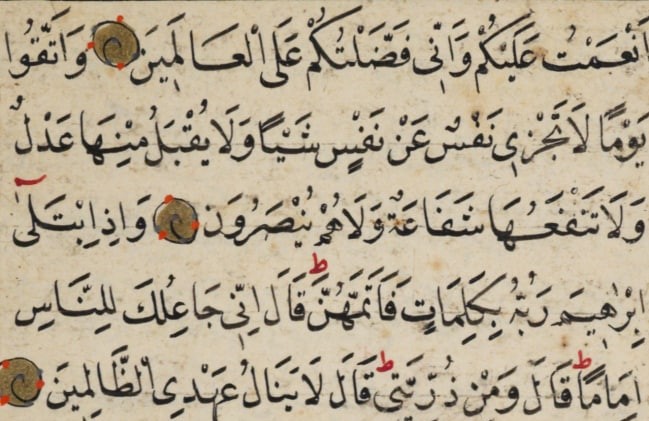 اَنْعَمْتُ عَلَيْكُمْ وَاَنِّى فَضَّلْتُكُمْ عَلَى الْعَالَمِينَ وَاتَّقُوا
يَوْمًا لَا تَجْزِى نَفْسٌ عَنْ نَفْسٍ شَيْئًا وَلَا يُقْبَلُ مِنْهَا عَدْلٌ
وَلَا تَنْفَعُهَا شَفَاعَةٌ وَلَا هُمْ يُنْصَرُونَ وَاِذِ ابْتَلٰٓى
اِبْرٰهٖيمَ رَبُّهُ بِكَلِمَاتٍ فَاَتَمَّهُنَّ ط قَالَ اِنِّى جَاعِلُكَ لِلنَّاسِ
اِمَامًا ط قَالَ وَمِنْ ذُرِّيَّتِى ط قَالَ لَا يَنَالُ عَهْدِى الظَّالِمِينَ